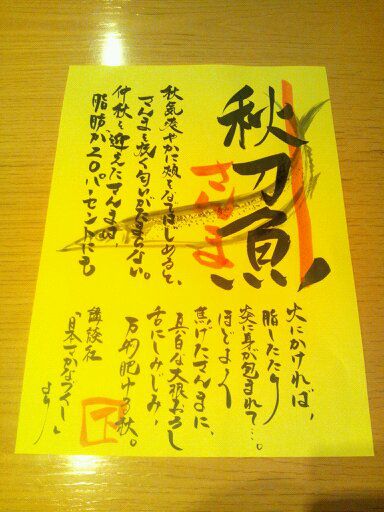 秋刀魚
さんま
秋気爽やかに頬をなではじめると、
さんまを焼く匂いがたまらない。
仲秋を迎えたさんまは
脂肪が20パーセントにも
火にかければ、
脂したたり
炎に身が包まれて…。
ほどよく
焦げたさんまに、
真白な大根おろし
舌にしみじみ、
万物肥ゆる秋。
講談社
「日本さかなづくし」
より